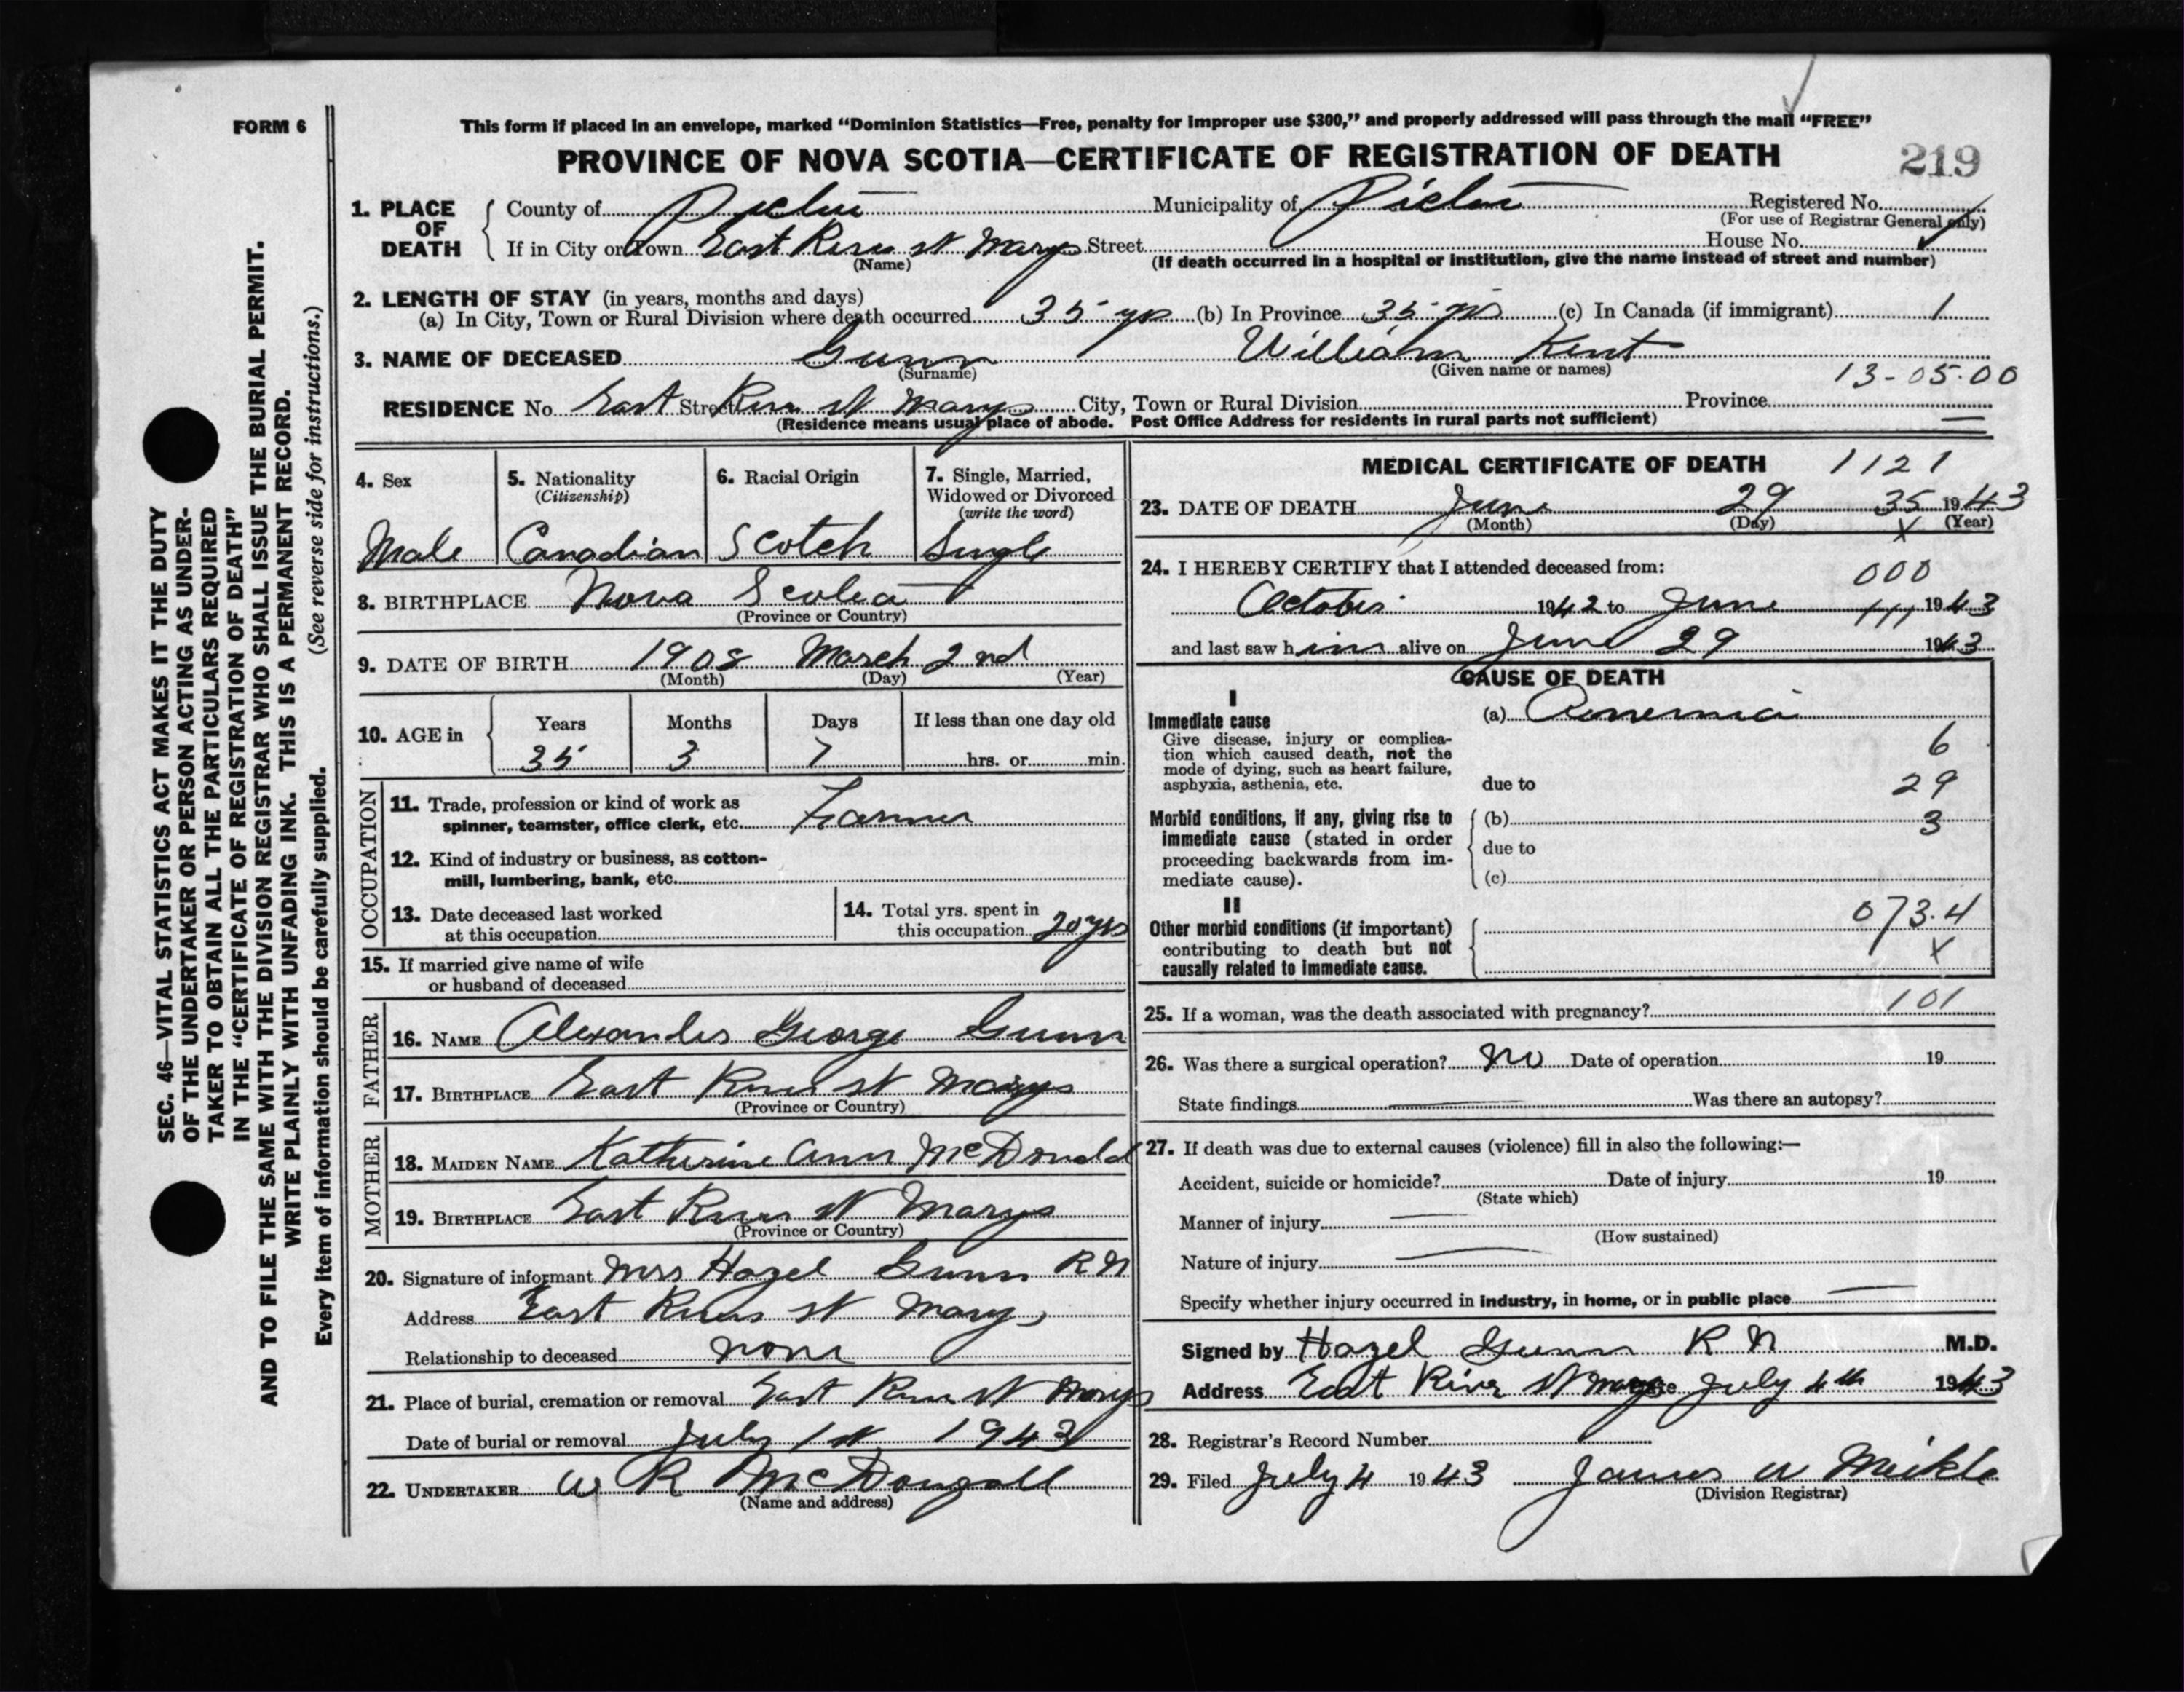 FORM 6
This form if placed in an envelope, marked “Dominion Statistics—Free, penalty for improper use $300,” and properly addressed will pass through the mail “FREE”
PROVINCE OF NOVA SCOTIA—CERTIFICATE OF REGISTRATION OF DEATH 219
1. PLACE OF DEATH
County of Pictou Municipality of Pictou Registered No.
(For use of Registrar General only)
If in City or Town East River St Marys Street House No.
(Name) (If death occurred in a hospital or institution, give the name instead of street and number)
2. LENGTH OF STAY (in years, months and days)
(a) In City, Town or Rural Division where death occurred 35 yrs (b) In Province 35 yrs (c) In Canada (if immigrant) 1
3. NAME OF DECEASED Gunn William Kent
(Surname) (Given name or names)
13-05.00
RESIDENCE No. East Street River St Marys City, Town or Rural Division Province
(Residence means usual place of abode. Post Office Address for residents in rural parts not sufficient)
4. Sex
Male
5. Nationality
(Citizenship)
Canadian
6. Racial Origin
Scotch
7. Single, Married,
Widowed or Divorced
(write the word)
Single
8. BIRTHPLACE Nova Scotia
(Province or Country)
9. DATE OF BIRTH 1908 March 2nd
(Month) (Day) (Year)
10. AGE in
Years Months Days If less than one day old
35 3 7 hrs. or min.
OCCUPATION
11. Trade, profession or kind of work as
spinner, teamster, office clerk, etc. Farmer
12. Kind of industry or business, as cotton-
mill, lumbering, bank, etc.
13. Date deceased last worked
at this occupation
14. Total yrs. spent in
this occupation 20 yrs
15. If married give name of wife
or husband of deceased
FATHER
16. NAME Alexander George Gunn
17. BIRTHPLACE East River St Marys
(Province or Country)
MOTHER
18. MAIDEN NAME Katherine Ann McDonald
19. BIRTHPLACE East River St Marys
(Province or Country)
20. Signature of informant Mrs Hazel Gunn RN
Address East River St Marys
Relationship to deceased none
21. Place of burial, cremation or removal East River St Marys
Date of burial or removal July 1st 1943
22. UNDERTAKER W R McDougall
(Name and address)
MEDICAL CERTIFICATE OF DEATH 1121
23. DATE OF DEATH June 29 35 1943
(Month) (Day) X (Year)
24. I HEREBY CERTIFY that I attended deceased from:
000
October 1942 to June 111 1943
and last saw him alive on June 29 1943
CAUSE OF DEATH
I
Immediate cause
Give disease, injury or complica-
tion which caused death, not the
mode of dying, such as heart failure,
asphyxia, asthenia, etc.
(a) Anemia
6
due to 29
Morbid conditions, if any, giving rise to
immediate cause (stated in order
proceeding backwards from im-
mediate cause).
(b) 3
due to
(c)
II
Other morbid conditions (if important)
contributing to death but not
causally related to immediate cause.
073.4
X
25. If a woman, was the death associated with pregnancy? 101
26. Was there a surgical operation? No Date of operation 19
State findings Was there an autopsy?
27. If death was due to external causes (violence) fill in also the following:—
Accident, suicide or homicide? Date of injury 19
(State which)
Manner of injury
(How sustained)
Nature of injury
Specify whether injury occurred in industry, in home, or in public place
Signed by Hazel Gunn R N M.D.
Address East River St Marys Date July 4th 1943
28. Registrar's Record Number
29. Filed July 4 1943 James W Meikle
(Division Registrar)
SEC. 46—VITAL STATISTICS ACT MAKES IT THE DUTY
OF THE UNDERTAKER OR PERSON ACTING AS UNDER-
TAKER TO OBTAIN ALL THE PARTICULARS REQUIRED
IN THE “CERTIFICATE OF REGISTRATION OF DEATH”
AND TO FILE THE SAME WITH THE DIVISION REGISTRAR WHO SHALL ISSUE THE BURIAL PERMIT.
WRITE PLAINLY WITH UNFADING INK. THIS IS A PERMANENT RECORD.
Every item of information should be carefully supplied. (See reverse side for instructions.)